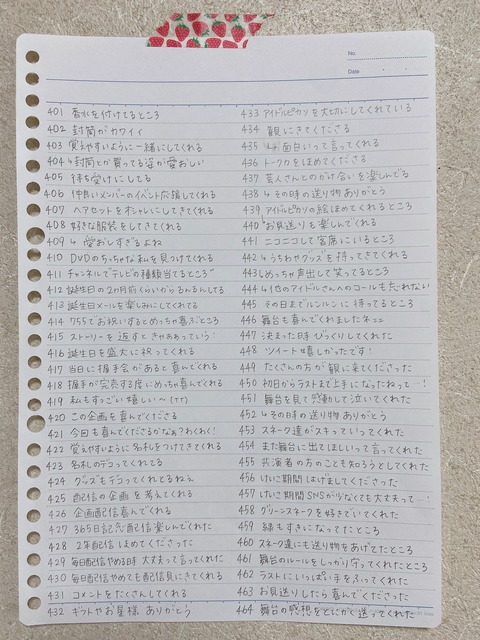 No.
Date
401 香水を付けてるところ
402 封筒がカワイイ
403 覚えやすいように一緒にしてくれる
404 ↳封筒とか買ってる姿が愛おしい
405 待ち受けにしてる
406 仲良いメンバーのイベント応援してくれる
407 ヘアセットをオシャレにしてきてくれる
408 好きな服装をしてきてくれる
409 ↳ 愛おしすぎるよね
410 DVDのちっちゃな私を見つけてくれる
411 チャンネルでテレビの種類当てるところ
412 誕生日の2カ月前くらいからるんるんしてる
413 誕生日メールを楽しみにしてくれてる
414 755でお祝いするとめっちゃ喜ぶところ
415 ストーリーを返すときゃあぁっていう
416 誕生日を盛大に祝ってくれる
417 当日に握手会があると喜んでくれる
418 握手が完売する度にめっちゃ喜んでくれる
419 私もすっごい嬉しい〜(TT)
420 この企画を喜んでくださる
421 今日も喜んでくださるかなぁ?わくわく!
422 覚えやすように名札をつけてきてくれる
423 名札のデコってくれてる
424 グッズもデコってくれとるねぇ
425 配信の企画を考えてくれる
426 企画配信喜んでくれる
427 365日記念配信楽しんでくれた
428 2年配信ほめてくださった
429 毎日配信やめる時大丈夫って言ってくれた
430 毎日配信やめても配信見にきてくれる
431 コメントをたくさんしてくれる
432 ギフトやお星様ありがとう
433 アイドルピカリを大切にしてくれている
434 観にきてくださる
435 ↳面白いって言ってくれる
436 トーク力をほめてくださる
437 芸人さんとのかけ合いを楽しんでる
438 ↳その時の送り物ありがとう
439 アイドルピカリの絵ほめてくれるところ
440 お見送りも楽しんでくれる
441 ニコニコして客席にいるところ
442 ↳うちわやグッズを持ってきてくれる
443 めっちゃ声出して笑ってるところ
444 ↳他のアイドルさんへのコールも忘れない
445 その日までルンルンに待ってるところ
446 舞台も喜んでくれました
447 決まった時びっくりしてくれた
448 ツイート嬉しかったです!
449 たくさんの方が観に来てくださった
450 初日からラストまで上手になったねって…!
451 舞台を見て感動して泣いてくれた
452 ↳その時の送り物ありがとう
453 スネーク達がスキっていってくれた
454 また舞台に出てほしいって言ってくれた
455 共演者の方のことも知ろうとしてくれた
456 けいこ期間はげましてくださった
457 けいこ期間SNSが少なくても大丈夫って…!
458 グリーンスネークを好きでいてくれた
459 緑もすきになってたところ
460 スネーク達にも送り物をあげてたところ
461 舞台のルールをしっかり守ってくれたところ
462 ラストにいっぱい手をふってくれた
463 お見送りしたら喜んでくれた
464 舞台の感想をとにかく送ってくれた